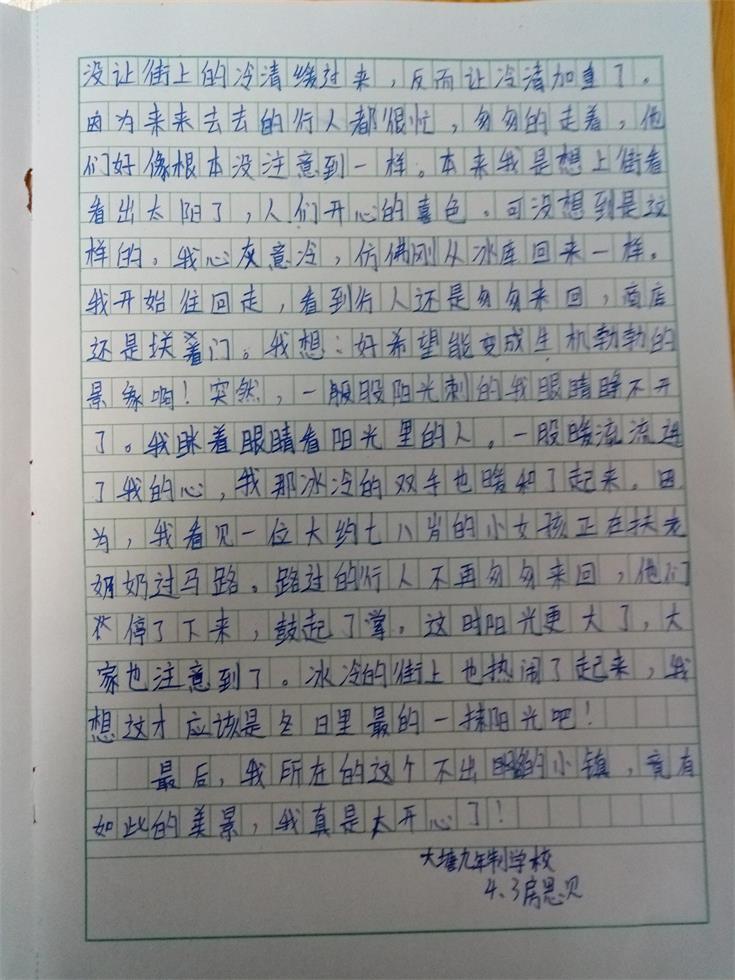 没让街上的冷清缓过来，反而让冷清加重了。
因为来来去去的行人都很忙，匆匆的走着，他
们好像根本没注意到一样。本来我是想上街看
看出太阳了，人们开心的喜色。可没想到是这
样的。我心灰意冷，仿佛刚从冰库回来一样。
我开始往回走，看到行人还是匆匆来回，商店
还是关着门。我想：好希望能变成生机勃勃的
景象啊！突然，一股阳光刺的我眼睛睁不开
了。我眯着眼睛看阳光里的人。一股暖流流进
了我的心，我那冰冷的双手也暖和了起来。因
为，我看见一位大约七八岁的小女孩正在扶老
奶奶过马路。路过的行人不再匆匆来回，他们
停了下来，鼓起了掌。这时阳光更大了，大
家也注意到了。冰冷的街上也热闹了起来，我
想这才应该是冬日里最的一抹阳光吧！
最后，我所在的这个不出的小镇，竟有
如此的美景，我真是太开心了！
大塘九年制学校
4.3房思贝